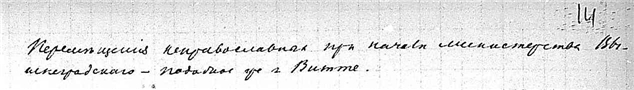 14
Перемѣщенія неправославных при начал министерства Вы-
шнеградскаго – подобное же г Витте.